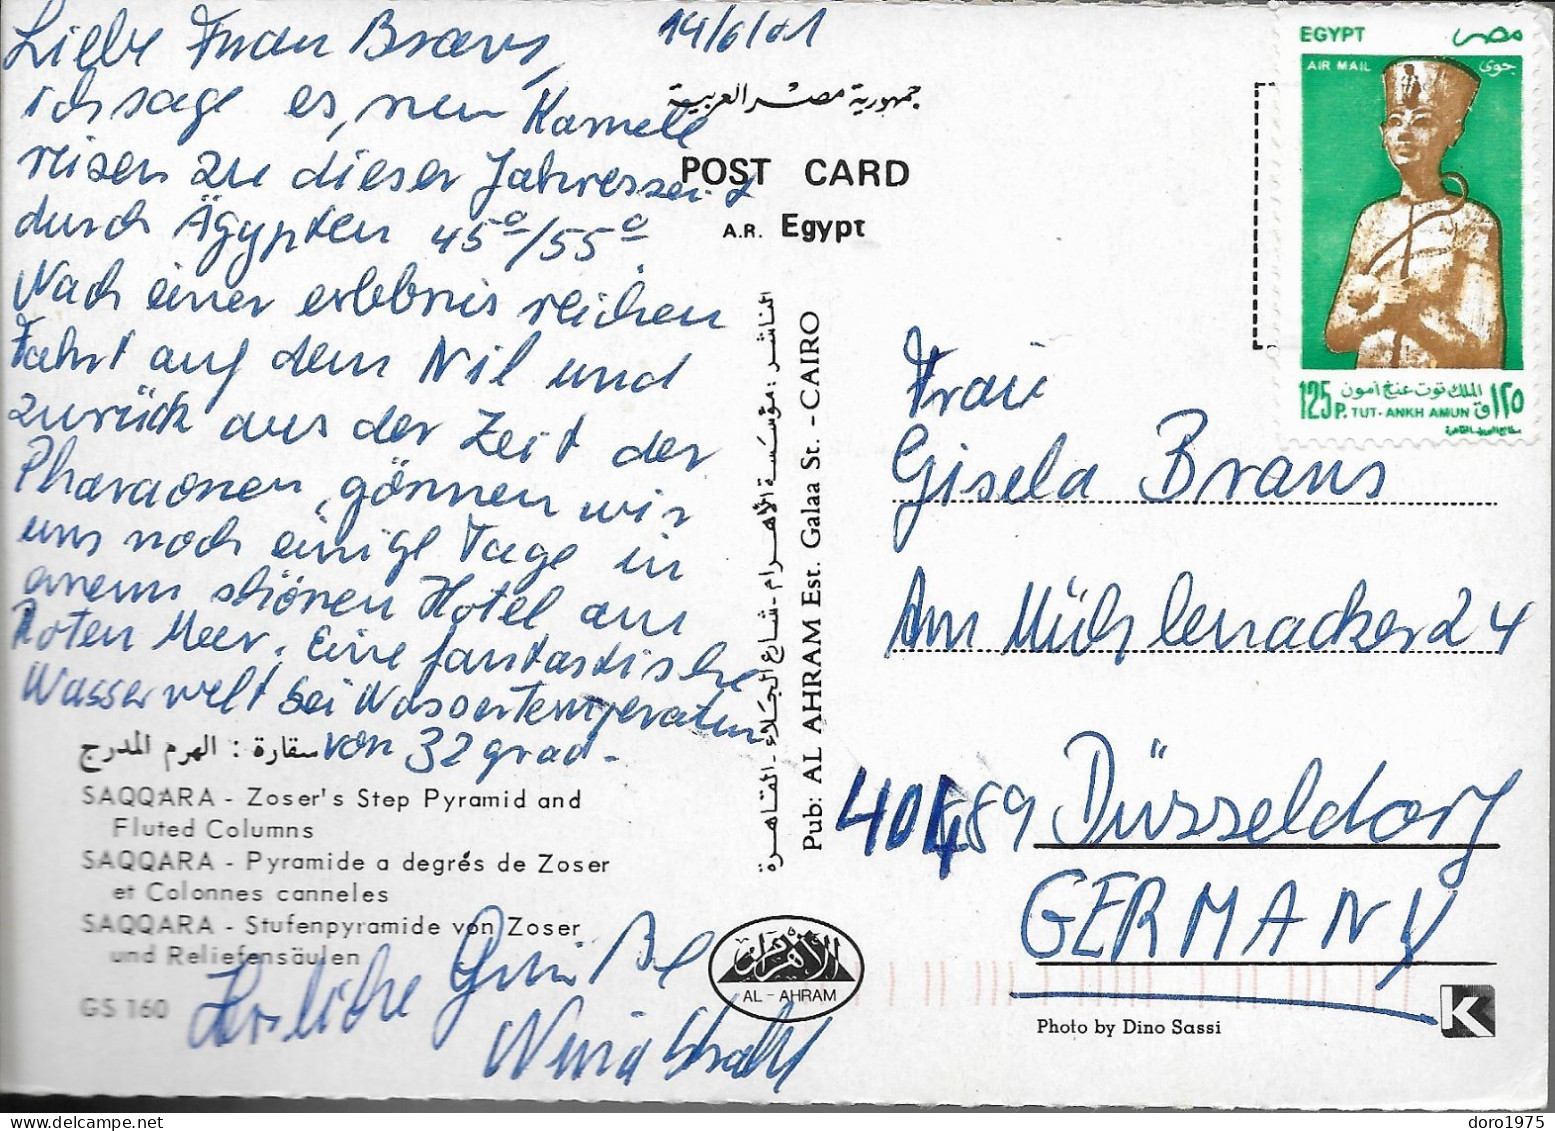 14/6/01
Liebe Frau Brans,
ich sage es, nur Kamele
reisen zu dieser Jahreszeit
durch Ägypten 45°/55°.
Nach einer erlebnisreichen
Fahrt auf dem Nil und
zurück aus der Zeit der
Pharaonen, gönnen wir
uns noch einige Tage in
einem schönen Hotel am
Roten Meer. Eine fantastische
Wasserwelt bei Wassertemperaturen
von 32 grad.
Herzliche Grüße
جمهورية مصر العربية
POST CARD
A.R. Egypt
EGYPT مصر
AIR MAIL جوى
الملك توت عنخ آمون
125 P. TUT-ANKH AMUN ١٢٥ ق
Frau
Gisela Brans
Am Mühlenacker 24
40489 Düsseldorf
GERMANY
الناشر: مؤسسة الأهرام - شارع الجلاء - القاهرة
Pub: AL AHRAM Est. Galaa St. - CAIRO
سقارة : الهرم المدرج
SAQQARA - Zoser's Step Pyramid and
Fluted Columns
SAQQARA - Pyramide a degrés de Zoser
et Colonnes canneles
SAQQARA - Stufenpyramide von Zoser
und Reliefensäulen
GS 160
الأهرام
AL - AHRAM
Photo by Dino Sassi
K
doro1975